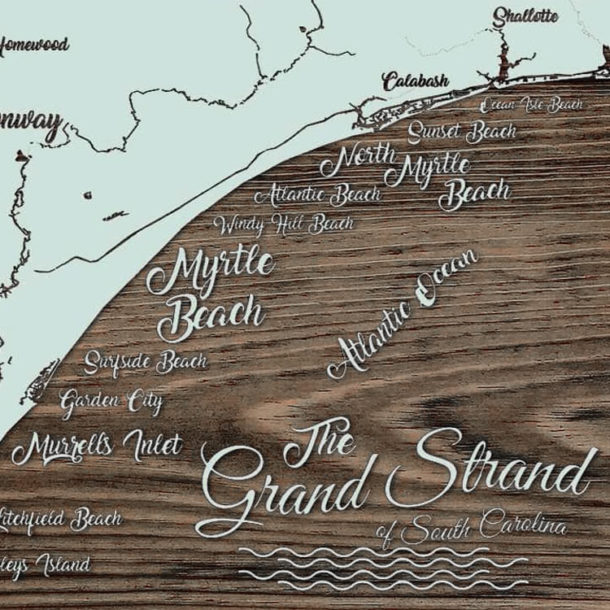 Shallotte
Homewood
Calabash
Ocean Isle Beach
nway
Sunset Beach
North
Myrtle
Beach
Atlantic Beach
Windy Hill Beach
Myrtle
Beach
Atlantic Ocean
Surfside Beach
Garden City
Murrells Inlet
The
Grand Strand
of South Carolina
itchfield Beach
leys Island